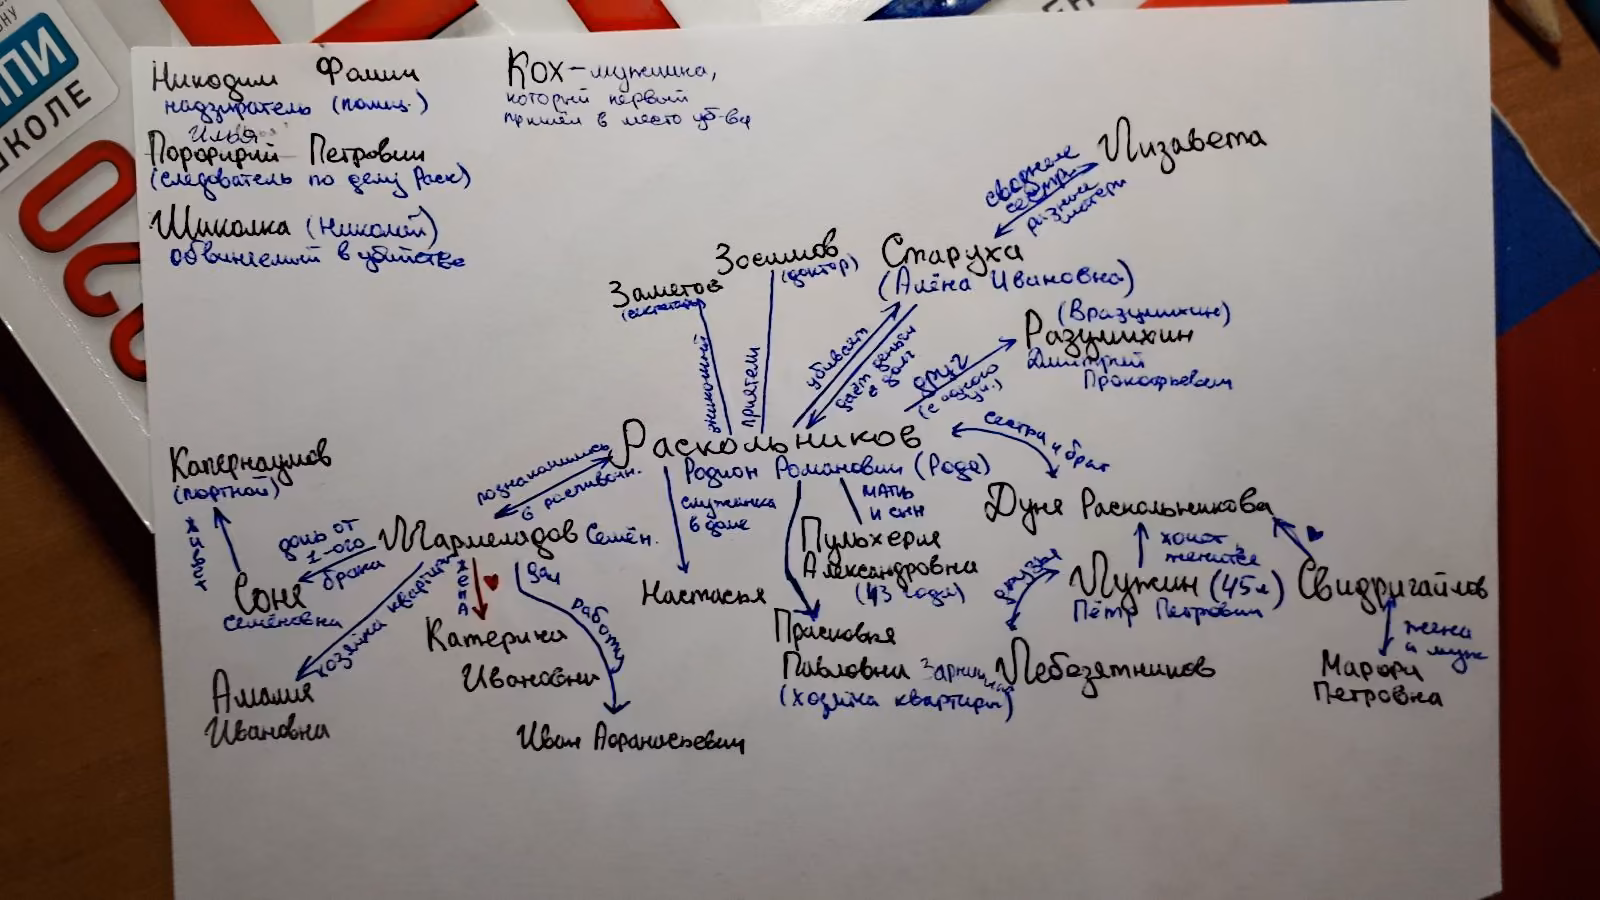 ПИ
ШКОЛЕ
Никодим Фомич
надзиратель (полиц.)
Илья
Порфирий Петрович
(следователь по делу Раск)
Шиколка (Николай)
обвиняемый в убийстве
Кох - мужчина,
который первый
пришёл в место уб-ва
Лизавета
сводные
сёстры
разные
матери
Старуха
(Алёна Ивановна)
Зосимов
(доктор)
Заметов
(секретарь)
приятели
убивает
даёт деньги
в долг
друг
(Вразумихин)
Разумихин
Дмитрий
Прокофьевич
Раскольников
Родион Романович (Родя)
сестра и брат
Дуня Раскольникова
познакомились
в распивочн.
служанка
в доме
Настасья
мать
и сын
Пульхерия
Александровна
(43 года)
Прасковья
Павловна
(хозяйка квартиры)
Капернаумов
(портной)
живёт
Соня
Семёновна
дочь от
1-ого
брака
Мармеладов Семён.
хозяйка квартиры
Амалия
Ивановна
жена
Катерина
Ивановна
дал
работу
Иван Афанасьевич
хочет
женится
Лужин (45л)
Пётр Петрович
друзья
Лебезятников
Свидригайлов
жена
и муж
Марфа
Петровна